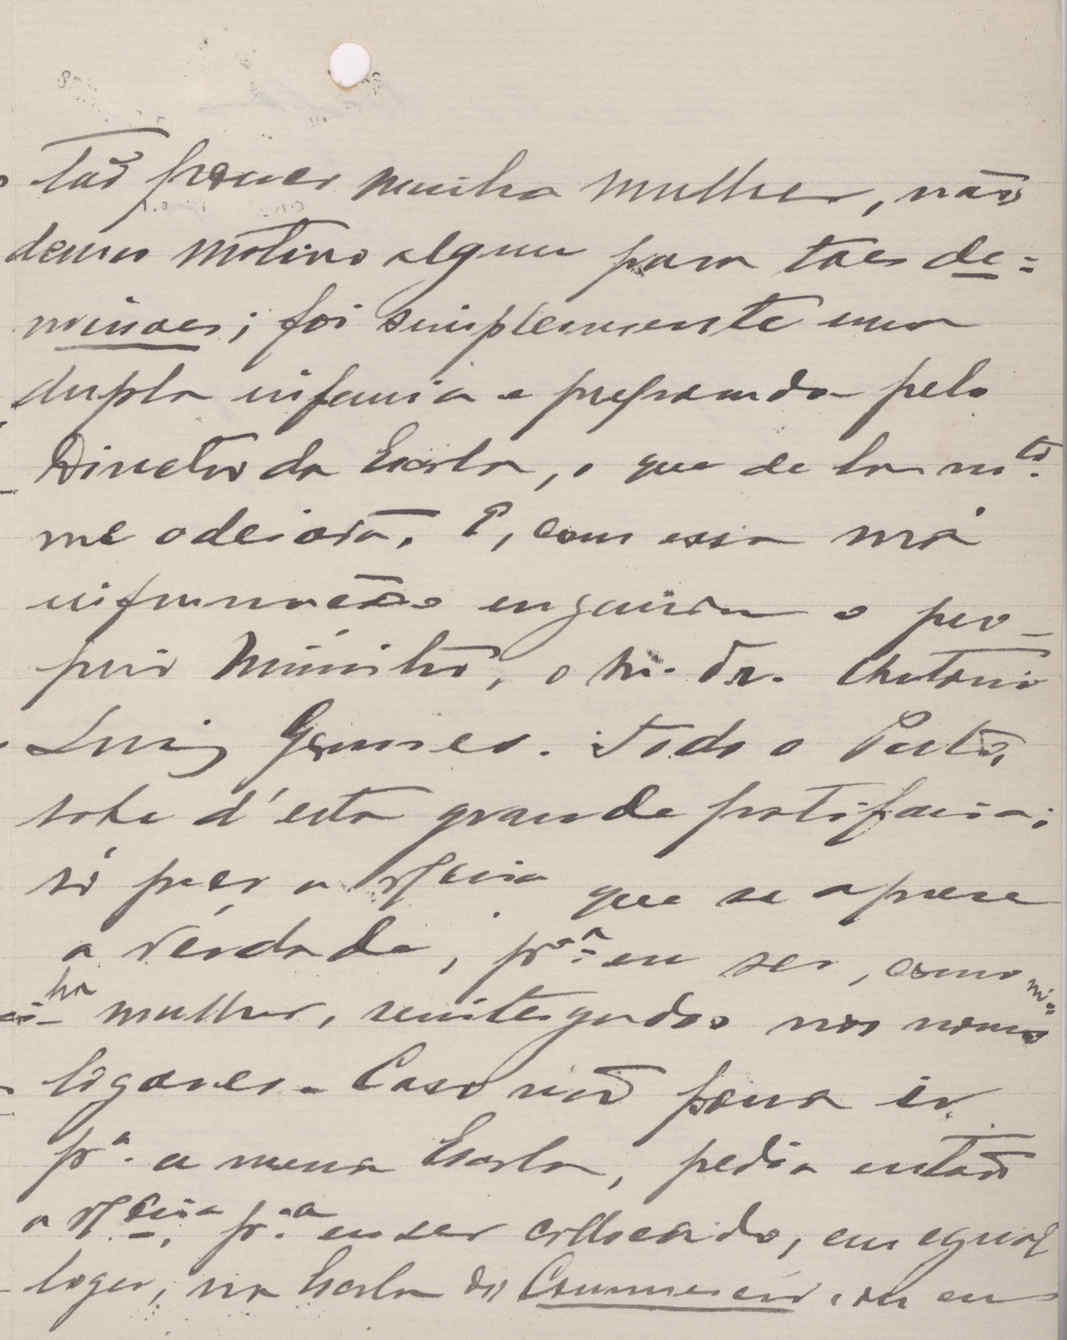 Tão pouco minha mulher, não
demos motivo algum para taes de=
missões; foi simplesmente uma
dupla infamia e preparada pelo
Director da Escola, o que de ha m.to
me odeiava. E, com essa má
informação enganaram o pro-
prio Ministro, o Sr. Dr. Antonio
Luiz Gomes. Todo o Porto,
sabe d'esta grande patifaria;
só peço a V. Excia que se apure
a verdade, p.ª eu ser, como mi=
nha mulher, reintegrados nos nossos
logares. Caso não possa ir
p.ª a mesma Escola, pedia então
a V. Excia p.ª eu ser collocado, em egual
logar, na Escola do Commercio, ou em